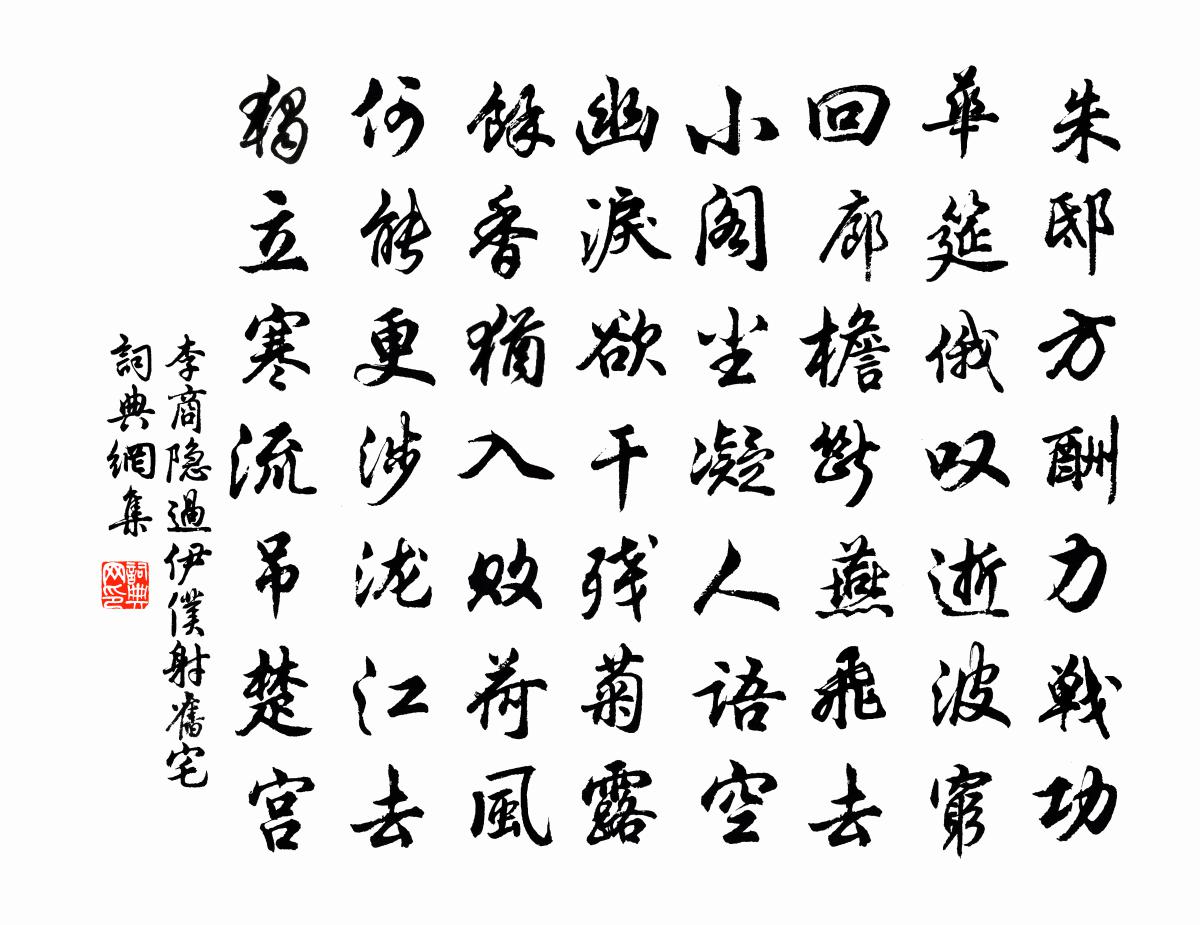 朱邸方酬力戦功
華筵俄叹逝波窮
回廊檐断燕飛去
小阁尘凝人语空
幽淚欲干残菊露
餘香猶入败荷風
何能更涉泷江去
獨立寒流吊楚宫
李商隐過伊僕射舊宅
詞典網集
詞典网印